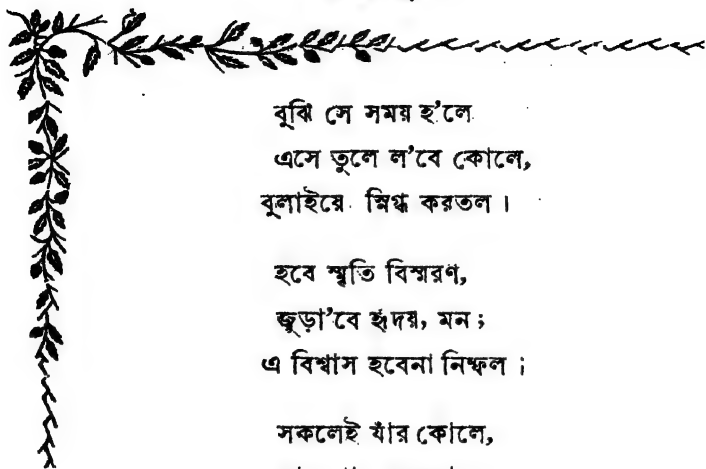 বুঝি সে সময় হ'লে
এসে তুলে ল'বে কোলে,
বুলাইয়ে স্নিগ্ধ করতল।
হবে স্মৃতি বিস্মরণ,
জুড়া'বে হৃদয়, মন;
এ বিশ্বাস হবেনা নিষ্ফল;
সকলেই যাঁর কোলে,